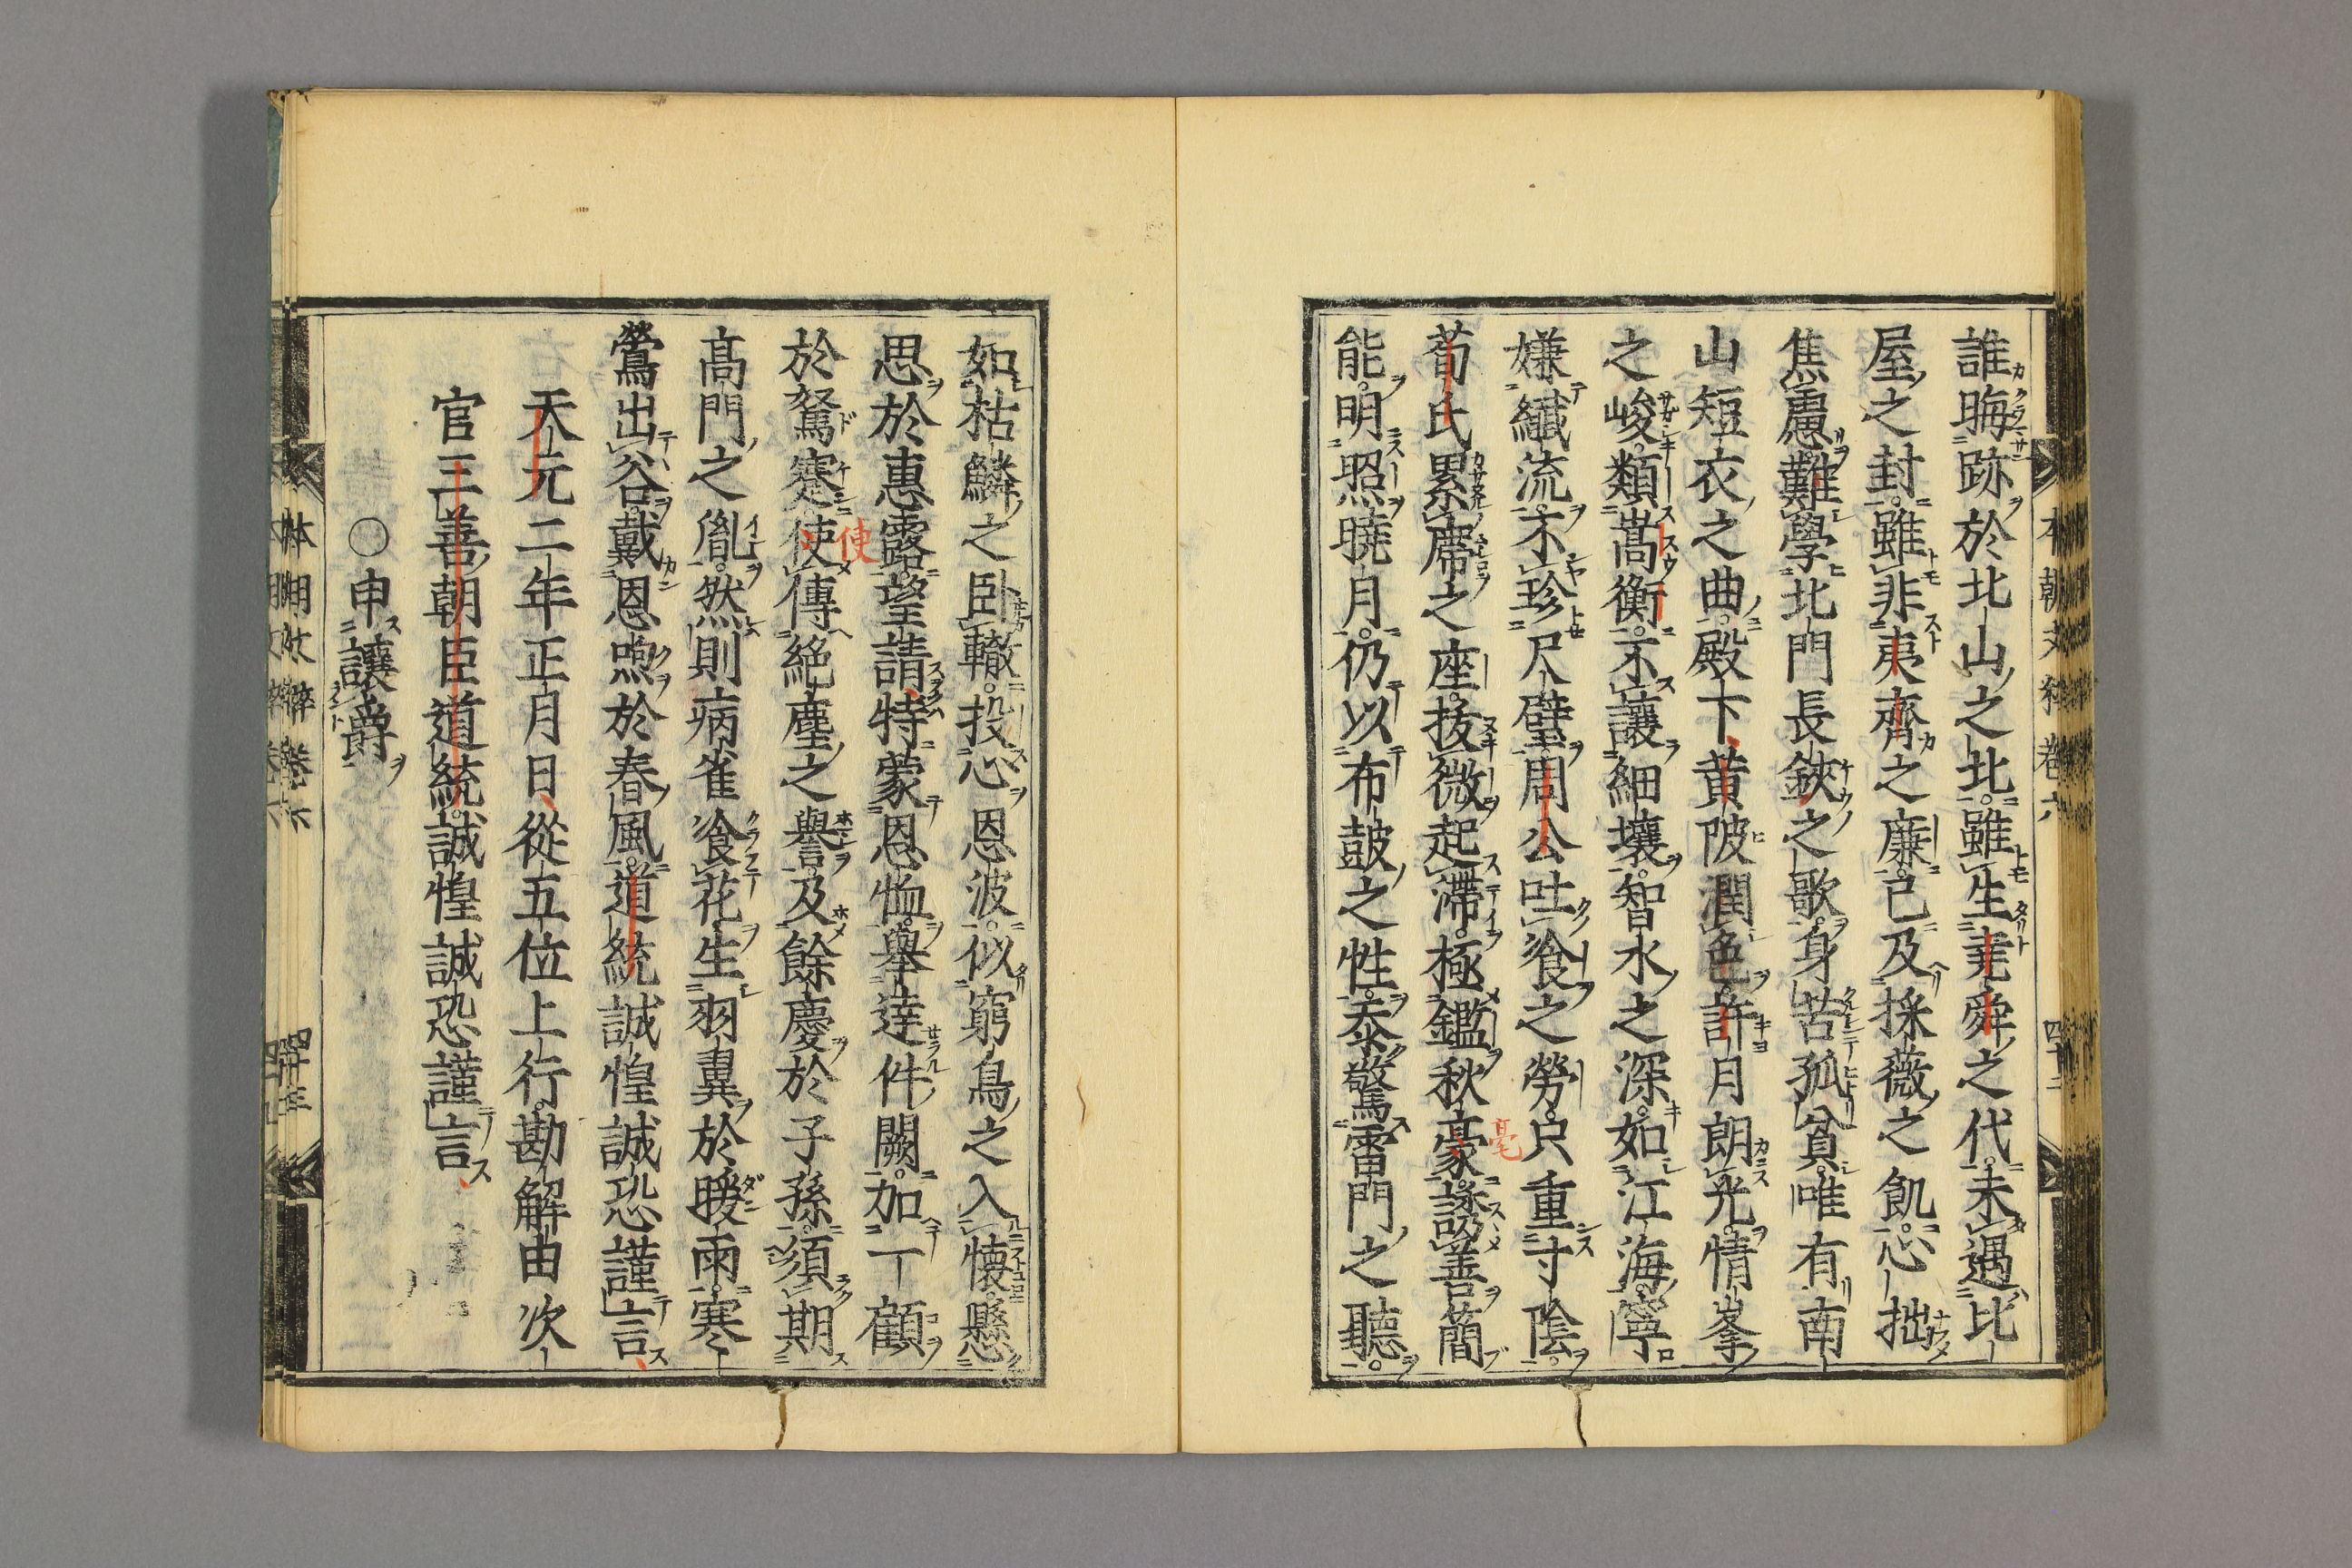 誰晦跡於北山之北雖生堯舜之代未遇比
屋之封雖非夷齊之廉已及採薇之飢心拙
焦慮難學北門長鋏之歌身苦孤貧唯有南
山短衣之曲殿下黄陂潤色許月朗光情峯
之峻類嵩衡不讓細壤智水之深如江海寧
嫌纎流不珍尺璧周公吐飡之勞只重寸陰
荀氏累席之座抜微起滯極鑑秋豪諺善簡
能明照曉月仍以布鼓之性忝驚雷門之聽
本朝文粹卷六 四十二
如枯鱗之臥轍投心恩波似窮鳥之入懷懸
思於惠露望請特蒙恩恤擧達件闕加一顧
於駑蹇使傳絶塵之譽及餘慶於子孫須期
髙門之胤然則病雀飡花生羽翼於暖雨寒
鶯出谷戴恩喣於春風道統誠惶誠恐謹言
天元二年正月日從五位上行勘解由次
官三善朝臣道統誠惶誠恐謹言
○申讓爵
本朝文粹卷六 四十三
使
毫